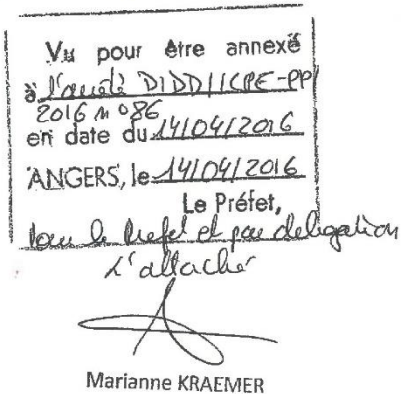 Vu pour être annexé
à l'arrêté DIDD/ICPE-PP/
2016 n° 86
en date du 14/04/2016
ANGERS, le 14/04/2016
Le Préfet,
Pour le Préfet et par délégation
L'attaché
Marianne KRAEMER